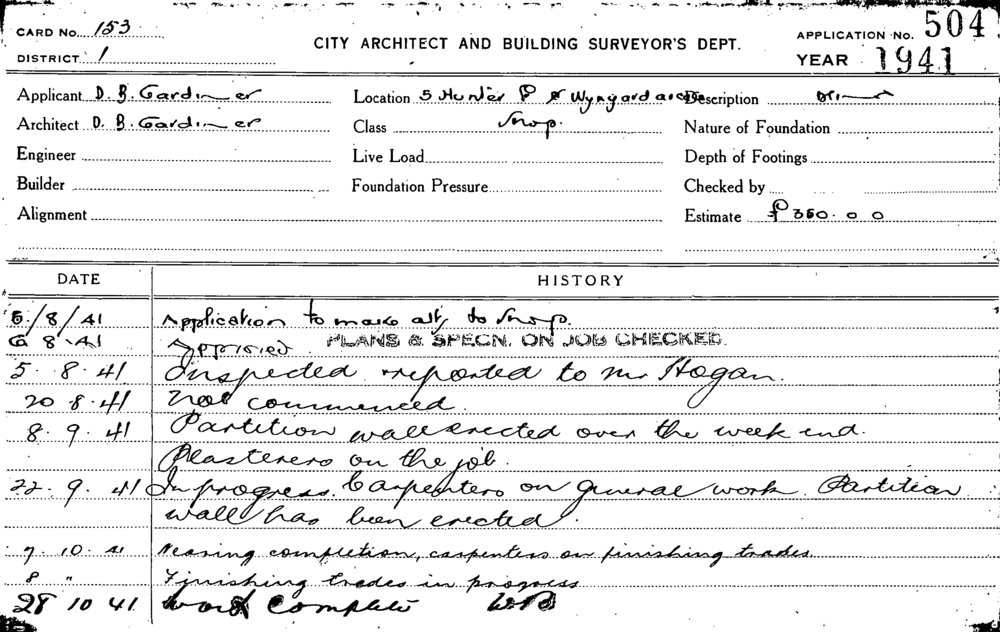 CARD No. 153
DISTRICT 1
CITY ARCHITECT AND BUILDING SURVEYOR'S DEPT.
APPLICATION No. 504
YEAR 1941
Applicant D. B. Gardiner
Location 5 Hunter & Wynyard
Description
Architect D. B. Gardiner
Class Shop.
Nature of Foundation
Engineer
Live Load
Depth of Footings
Builder
Foundation Pressure
Checked by
Alignment
Estimate £350.0 0
DATE HISTORY
5/8/41 Application to make alts to Shop.
6 8.41 Approved PLANS & SPECN. ON JOB CHECKED.
5. 8. 41 Inspected & reported to Mr Hogan.
20 8. 41 Not commenced.
8. 9. 41 Partition wall erected over the week end.
Plasterers on the job.
22. 9. 41 In progress. Carpenters on general work. Partition
wall has been erected.
7. 10. 41 Nearing completion, carpenters on finishing trades.
8 " Finishing trades in progress
28 10 41 Work Complete